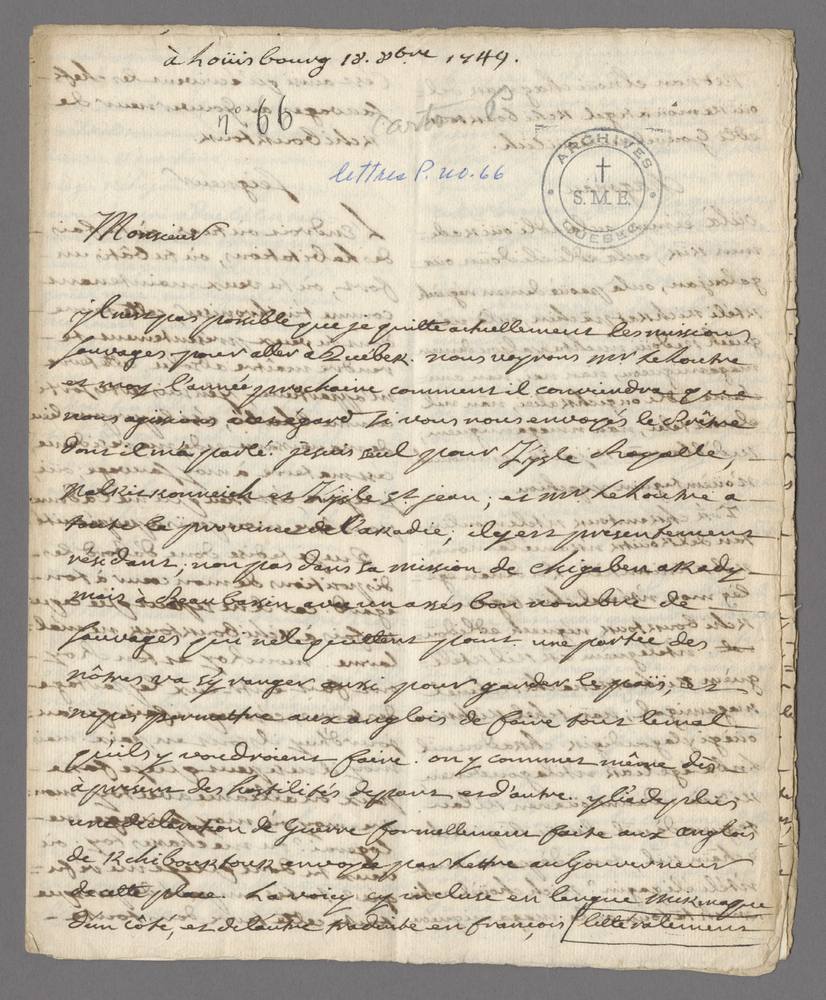 à Loüisbourg 18. 8bre 1749.
n. 66
Carton
lettres P. no. 66
ARCHIVES
S. M. E.
QUEBEC
Monsieur
il n'est pas possible que je quitte actuellement les missions
sauvages pour aller à Québek. nous voyrons mr LeLoutre
et moy l'année prochaine comment il conviendra que
nous agissions à cet égard si vous nous envoyés le Prêtre
dont il m'a parlé. je suis seul pour L'jsle Royalle,
Natkitkouneich et L'jsle St jean; et mr. LeLoutre a
toute la province de l'akadie; il y est presentement
résidant, non pas dans sa mission de chigabenakady
mais à Beaubassin avec un assés bon nombre de
sauvages qui ne le quittent point. une partie des
nôtres va s'y ranger aussi pour garder le païs, et
ne pas permettre aux anglois de faire tout le mal
qu'ils y voudroient faire. on y commet même dès
à present des hostilités de part et d'autre. il y a de plus
une déclaration de Guerre formellement faite aux anglois
de Kchibouktouk envoyée par Lettre au Gouverneur
de cette place. La voicy cy incluse en langue mikmaque
d'un côté, et de l'autre traduite en françois litteralement